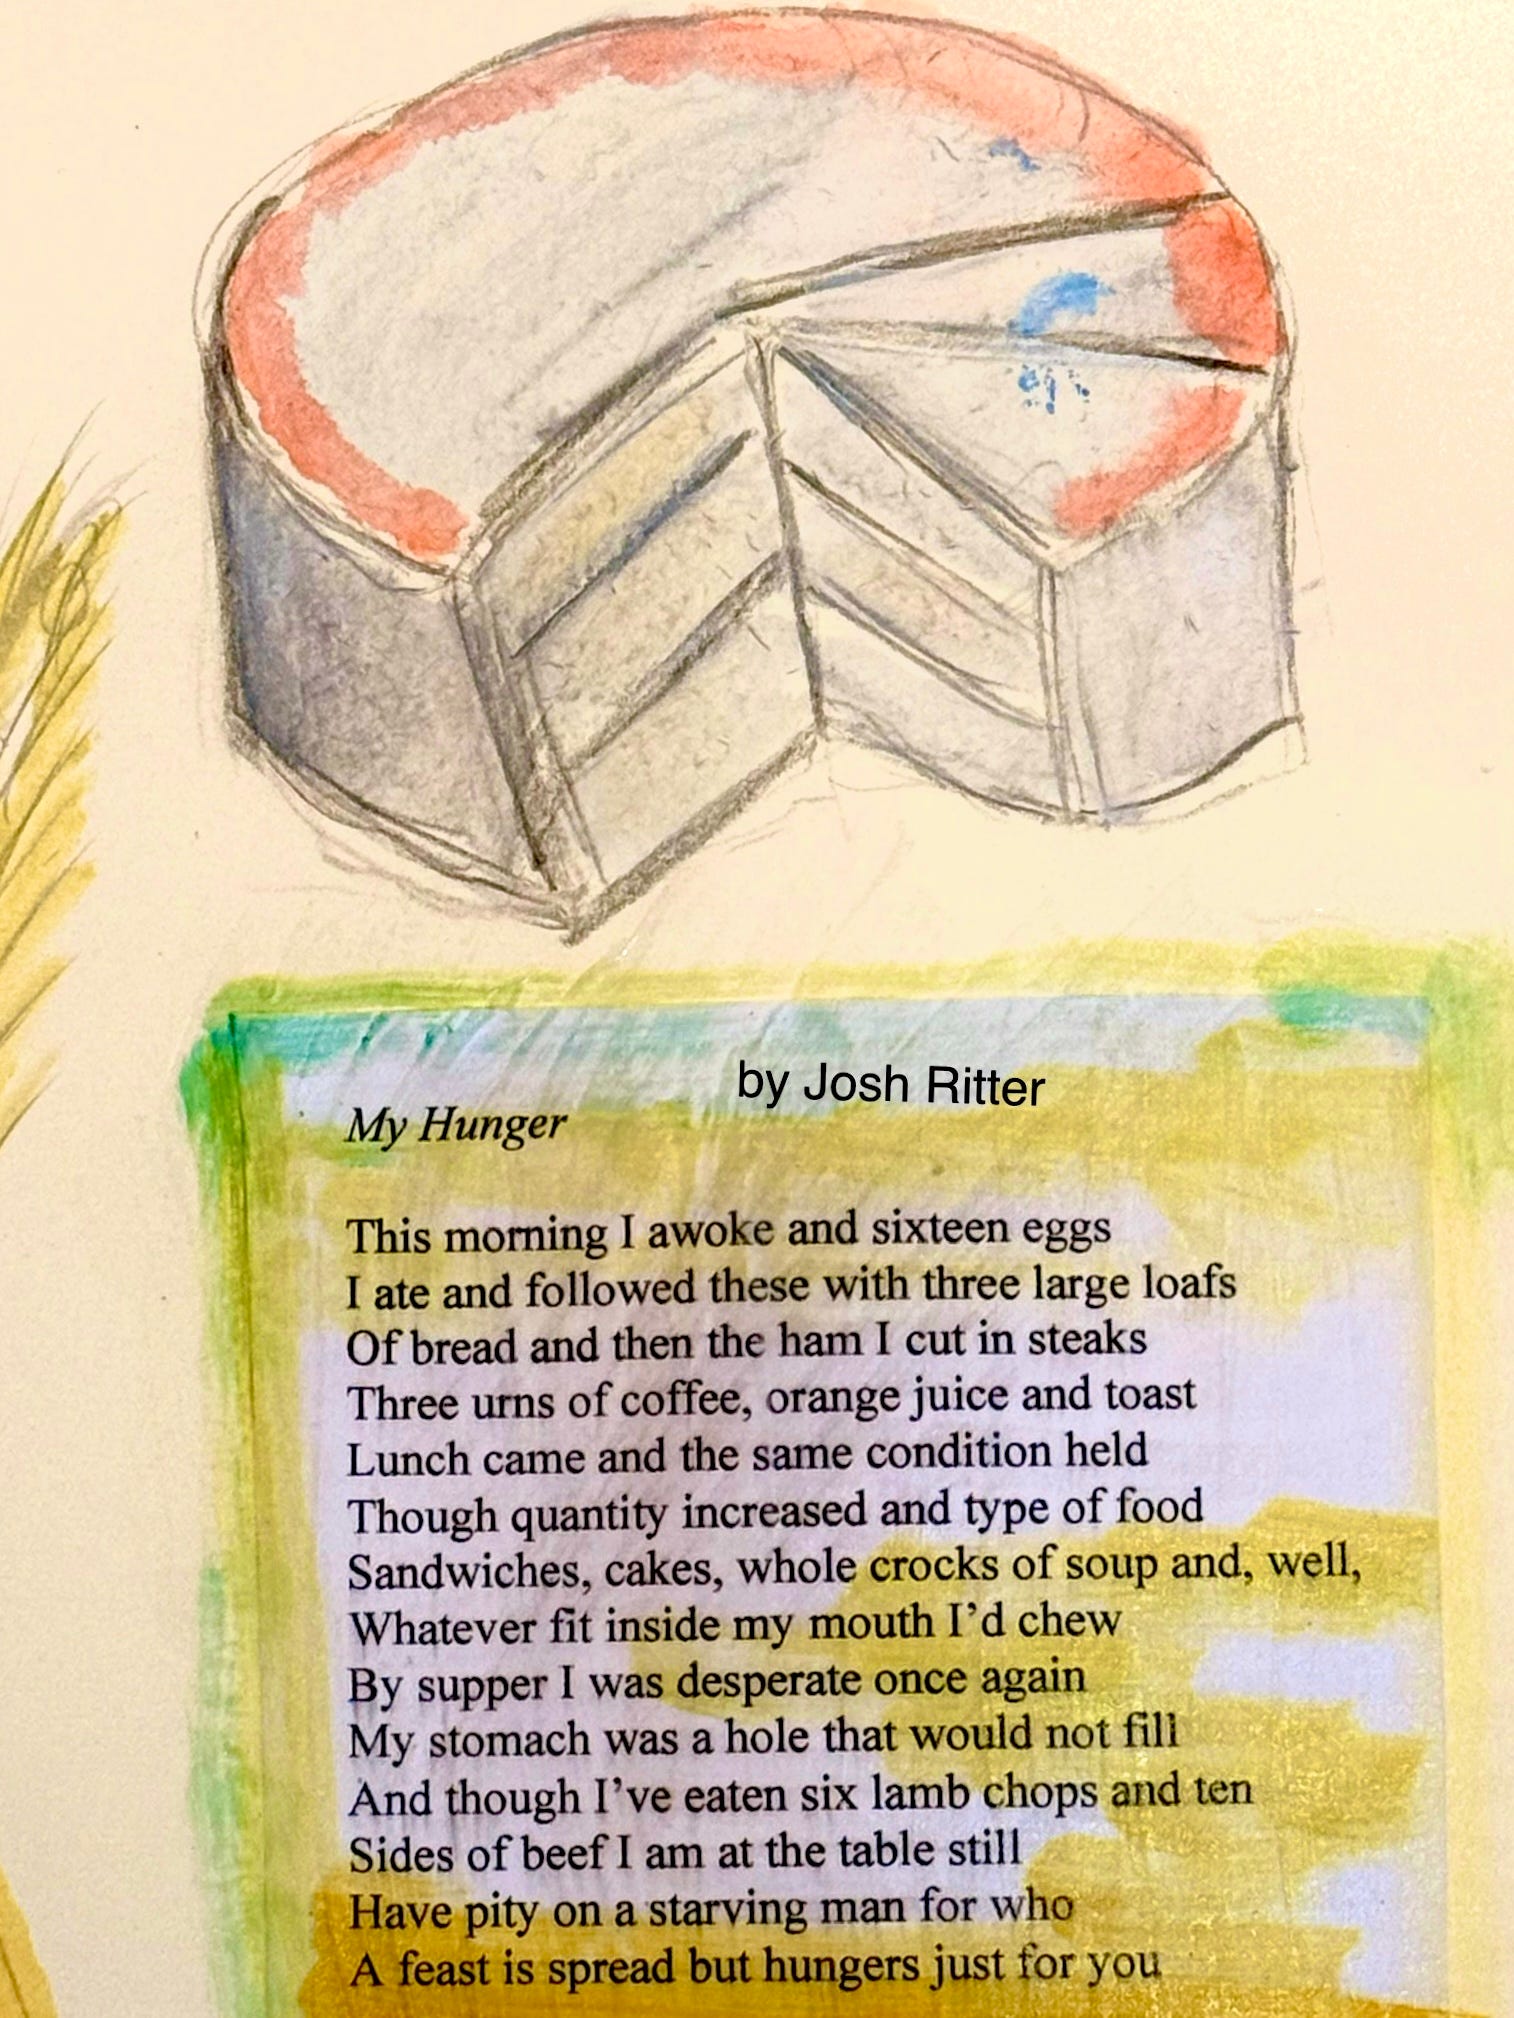 by Josh Ritter
My Hunger
This morning I awoke and sixteen eggs
I ate and followed these with three large loafs
Of bread and then the ham I cut in steaks
Three urns of coffee, orange juice and toast
Lunch came and the same condition held
Though quantity increased and type of food
Sandwiches, cakes, whole crocks of soup and, well,
Whatever fit inside my mouth I’d chew
By supper I was desperate once again
My stomach was a hole that would not fill
And though I’ve eaten six lamb chops and ten
Sides of beef I am at the table still
Have pity on a starving man for who
A feast is spread but hungers just for you